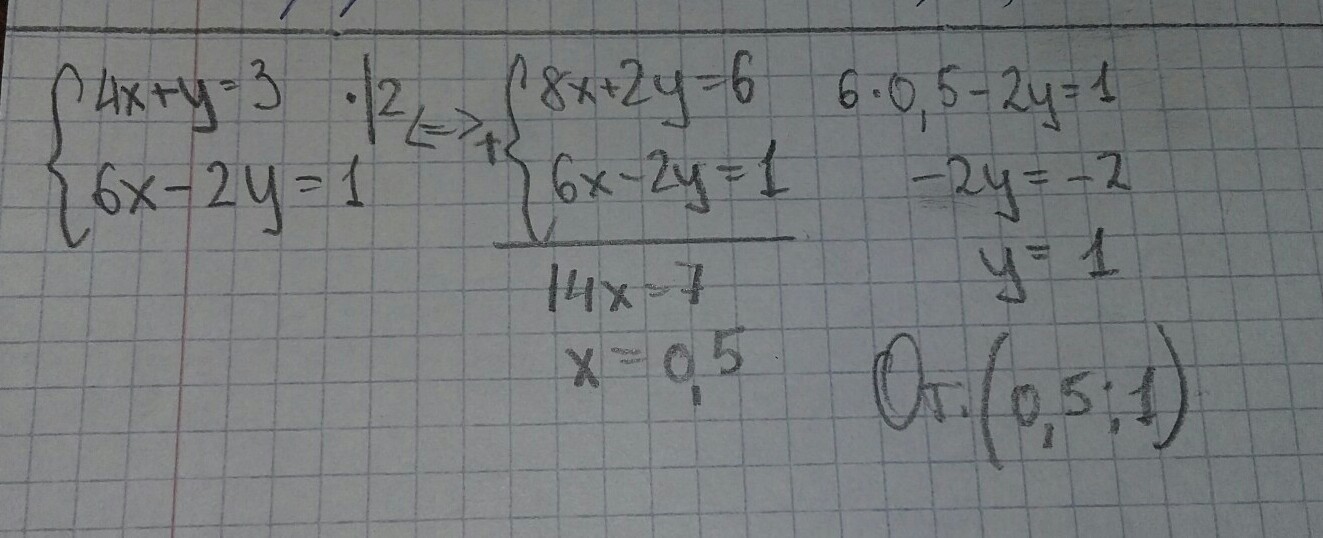 4x+y=3 ·|2
6x-2y=1
<=>
8x+2y=6
+
6x-2y=1
14x=7
x=0,5
6·0,5-2y=1
-2y=-2
y=1
От.(0,5;1)